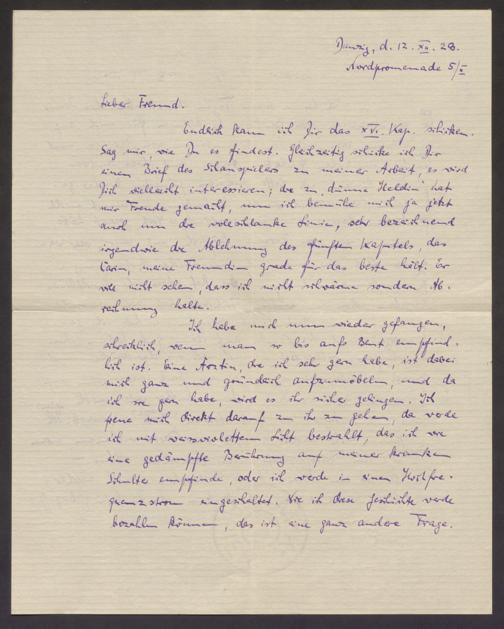 Danzig, d. 12. XII. 28.
Nordpromenade 5/I
Lieber Freund.
Endlich kann ich Dir das XVI. Kap. schicken.
Sag mir, wie Du es findest. Gleichzeitig schicke ich Dir
einen Brief des Schauspielers zu meiner Arbeit, es wird
Dich vielleicht interessieren; die zu „dünne Heldin" hat
mir Freude gemacht, nun ich bemühe mich ja jetzt
auch um die vollschlanke Linie, sehr bezeichnend
irgendwie die Ablehnung des fünften Kapitels, das
Carin, meine Freundin grade für das beste hält. Er
will nicht sehen, dass ich nicht schwärme sondern Ab-
rechnung halte.
Ich habe mich nun wieder gefangen,
schrecklich, wenn man so bis aufs Blut empfind-
lich ist. Eine Ärztin, die ich sehr gern habe, ist dabei
mich ganz und gründlich aufzumöbeln, und da
ich sie gern habe, wird es ihr sicher gelingen. Ich
freue mich direkt darauf zu ihr zu gehen, da werde
ich mit weissviolettem Licht bestrahlt, das ich wie
eine gedämpfte Berührung auf meiner kranken
Schulter empfinde, oder ich werde in einen Hochfre-
quenzstrom eingeschaltet. Wie ich diese Geschichte werde
bezahlen können, das ist eine ganz andere Frage.